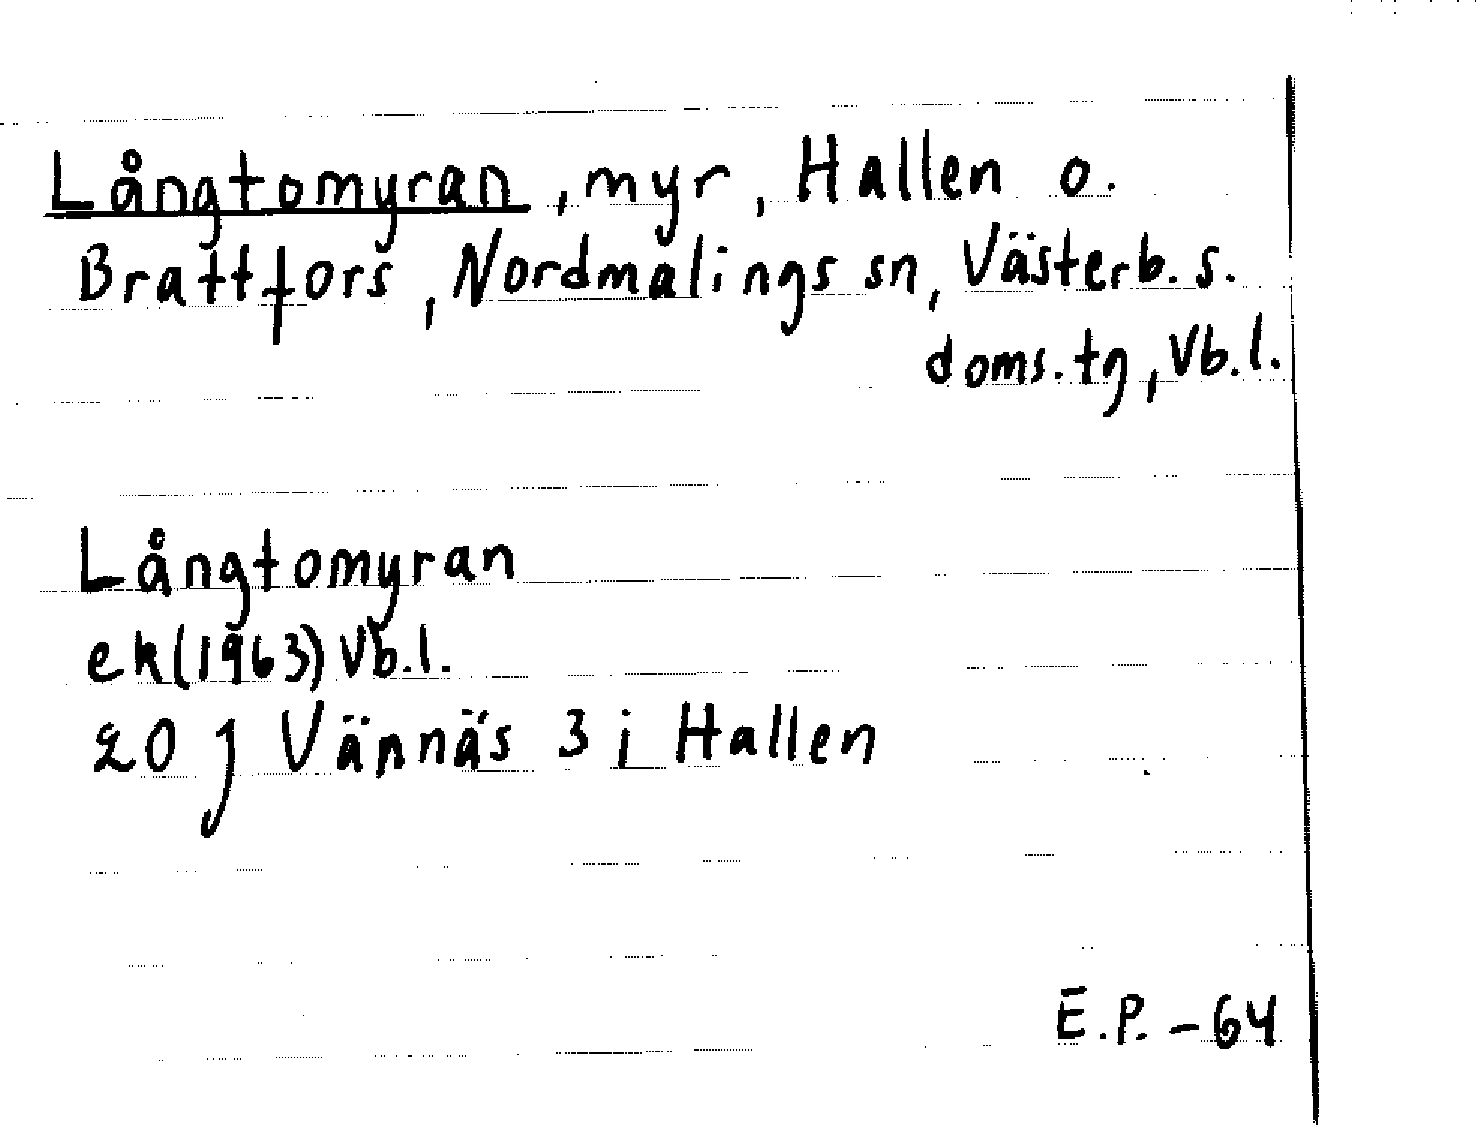 Långtomyran, myr, Hallen o.
Brattfors, Nordmalings sn, Västerb. s.
doms. tg, Vb. l.
Långtomyran
ek (1963) Vb. l.
20 J Vännäs 3 i Hallen
E.P. -64